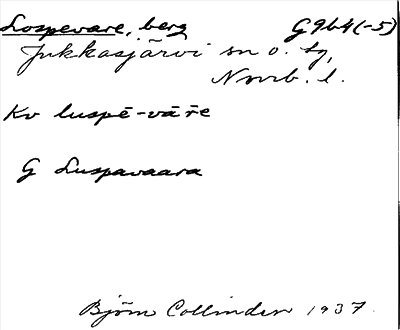 Lospevare, berg G9b4(-5)
Jukkasjärvi sn o. tg,
Norrb. l.
Kv luspē-vār̄e
G Luspavaara
Björn Collinder 1937.